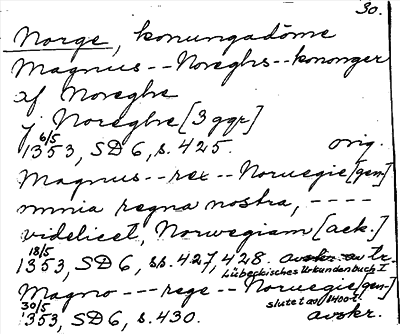 30.
Norge, konungadöme
Magnus -- Noreghs -- kononger
af Noreghe
j Noreghe [3 ggr]
6/5
1353, SD 6, s. 425. orig.
Magnus -- rex -- Norwegie [gen]
omnia regna nostra, ----
videlicet, Norwegiam [ack.]
18/5
1353, SD 6, ss. 427, 428. avskr. av tr.
Lübeckisches Urkundenbuch I
Magno --- rege -- Norwegie [gen]
30/5 slutet av 1400-t.
1353, SD 6, s. 430. avskr.